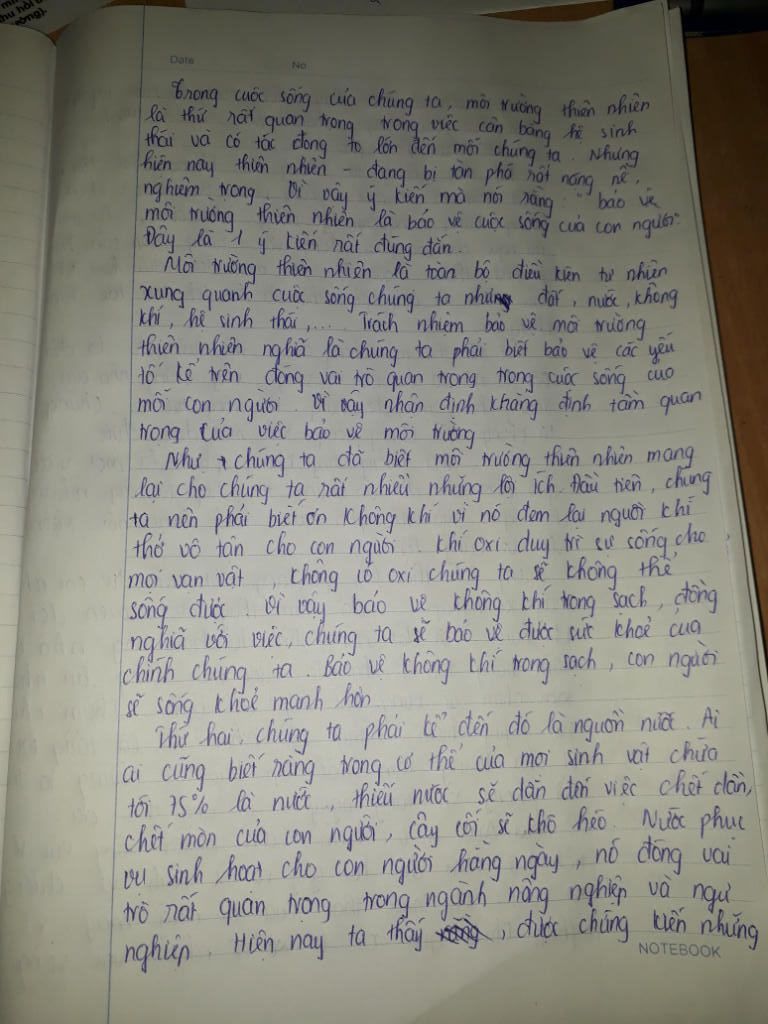 thu hồi
ường).
Date No
Trong cuộc sống của chúng ta, môi trường thiên nhiên
là thứ rất quan trong trong việc cân bằng hệ sinh
thái và có tác đong to lớn đến mỗi chúng ta. Nhưng
hiện nay thiên nhiên - đang bị tàn phá rất năng nề,
nghiêm trong. Vì vây ý kiến mà nói rằng: "bảo vệ
môi trường thiên nhiên là bảo vê cuộc sống của con người".
Đây là 1 ý kiến rất đúng đắn.
Môi trường thiên nhiên là toàn bộ điều kiên tư nhiên
xung quanh cuộc sống chúng ta như đất, nước, không
khí, hệ sinh thái,... Trách nhiệm bảo vệ môi trường
thiên nhiên nghĩa là chúng ta phải biết bảo vệ các yếu
tố kể trên đóng vai trò quan trong trong cuộc sống cuả
mỗi con người. Vì vây nhận định khẳng định tầm quan
trong của việc bảo vê môi trường
Như chúng ta đã biết môi trường thiên nhiên mang
lại cho chúng ta rất nhiều những lơi ích. Đầu tiên, chúng
ta nên phải biết ơn không khí vì nó đem lai nguồi khí
thở vô tân cho con người. khí oxi duy trì sư sống cho
moi van vât, không có oxi chúng ta sẽ không thể
sống được. Vì vây bảo vê không khí trong sach, đồng
nghĩa với việc, chúng ta sẽ bảo vê được sức khoẻ của
chính chúng ta. Bảo vệ không khí trong sach, con người
sẽ sống khoẻ manh hơn
Thứ hai, chúng ta phải kể đến đó là nguồn nước. Ai
ai cũng biết rằng trong cơ thể của moi sinh vât chứa
tới 75% là nước, thiếu nước sẽ dẫn đến việc chết dần,
chết mòn của con người, cây cối sẽ khô héo. Nước phục
vụ sinh hoat cho con người hằng ngày, nó đóng vai
trò rất quan trong trong ngành nông nghiệp và ngư
nghiệp. Hiện nay ta thấy, được chứng kiến những
NOTEBOOK